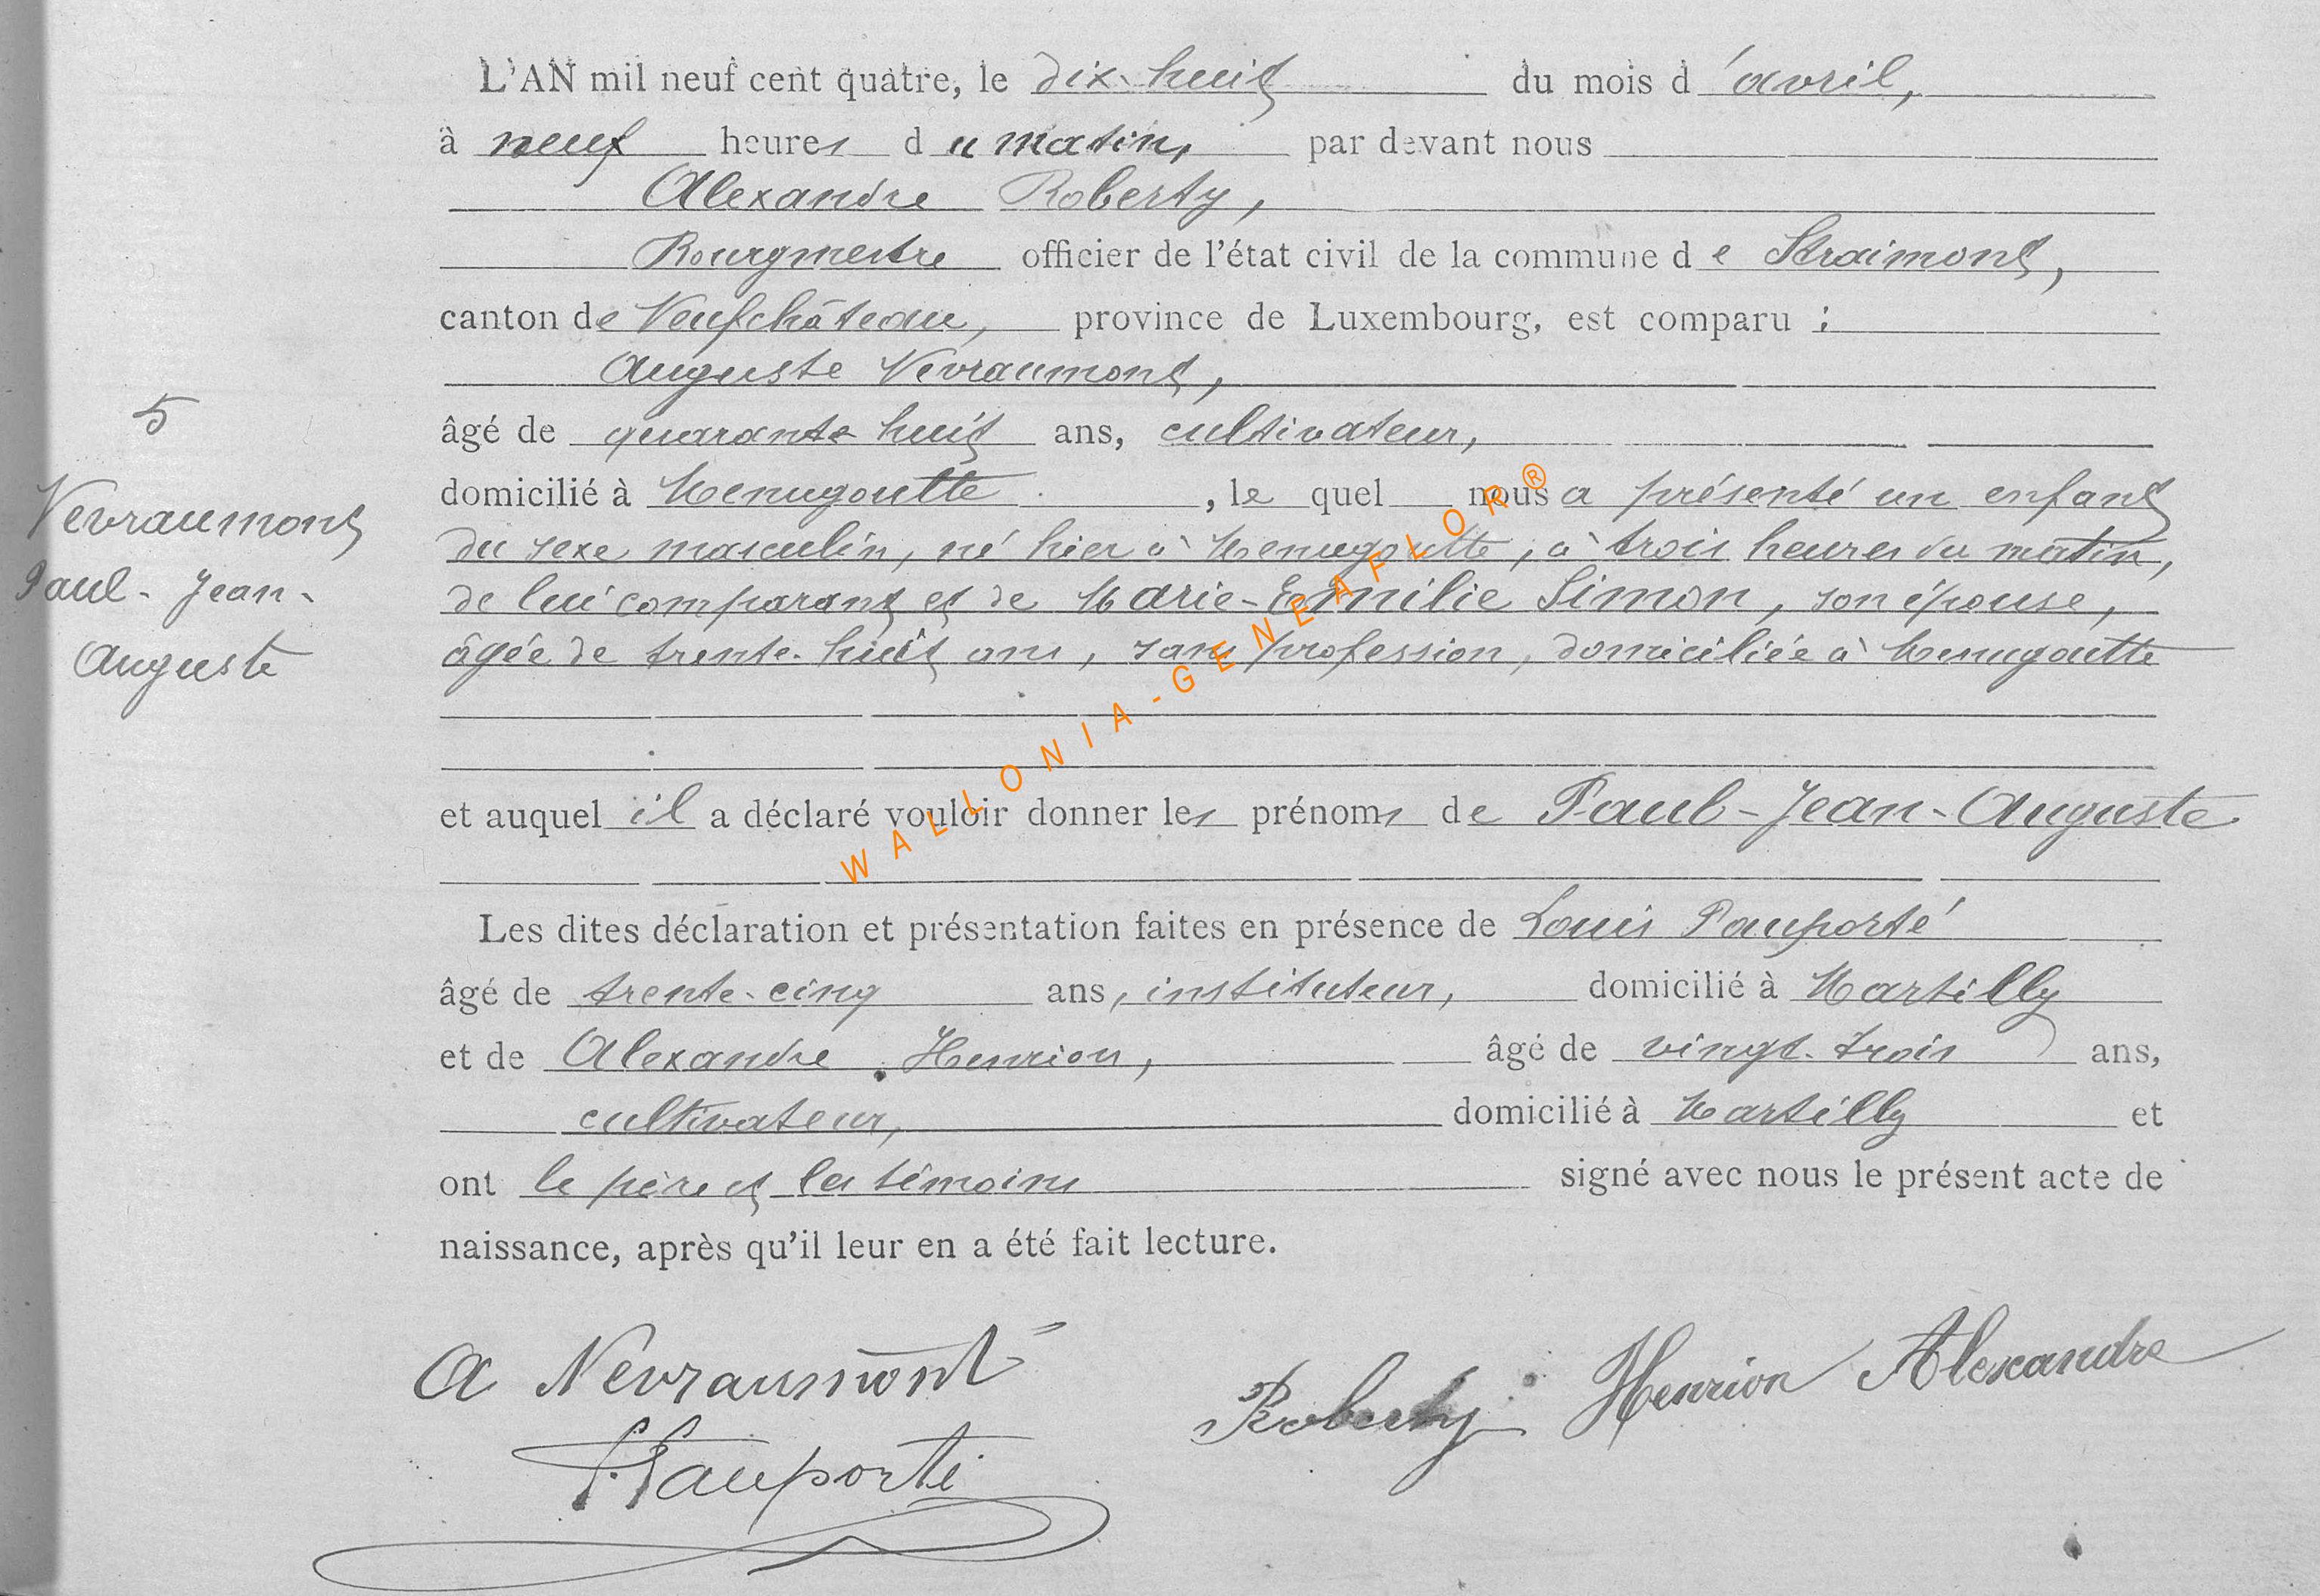 L'AN mil neuf cent quatre, le dix-huit du mois d'avril,
à neuf heures du matin, par devant nous
Alexandre Roberty,
Bourgmestre officier de l'état civil de la commune de Straimont,
canton de Neufchâteau, province de Luxembourg, est comparu :
Auguste Nevraumont,
âgé de quarante huit ans, cultivateur,
domicilié à Menugoutte, lequel nous a présenté un enfant
du sexe masculin, né hier à Menugoutte, à trois heures du matin,
de lui comparant et de Marie-Emilie Simon, son épouse,
âgée de trente-huit ans, sans profession, domiciliée à Menugoutte
et auquel il a déclaré vouloir donner les prénoms de Paul-Jean-Auguste
Les dites déclaration et présentation faites en présence de Louis Pauporté
âgé de trente-cinq ans, instituteur, domicilié à Martilly
et de Alexandre Henrion, âgé de vingt-trois ans,
cultivateur, domicilié à Martilly et
ont le père et les témoins signé avec nous le présent acte de
naissance, après qu'il leur en a été fait lecture.
5
Nevraumont
Paul-Jean-
Auguste
A Nevraumont
Roberty
Henrion Alexandre
L. Pauporté
WALLONIA-GENEAFLOR®